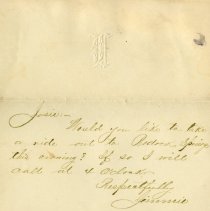 Josie -
Would you like to take
a ride out to
this evening? If so I will
call at 4 o'clock
Respectfully
Jimmie